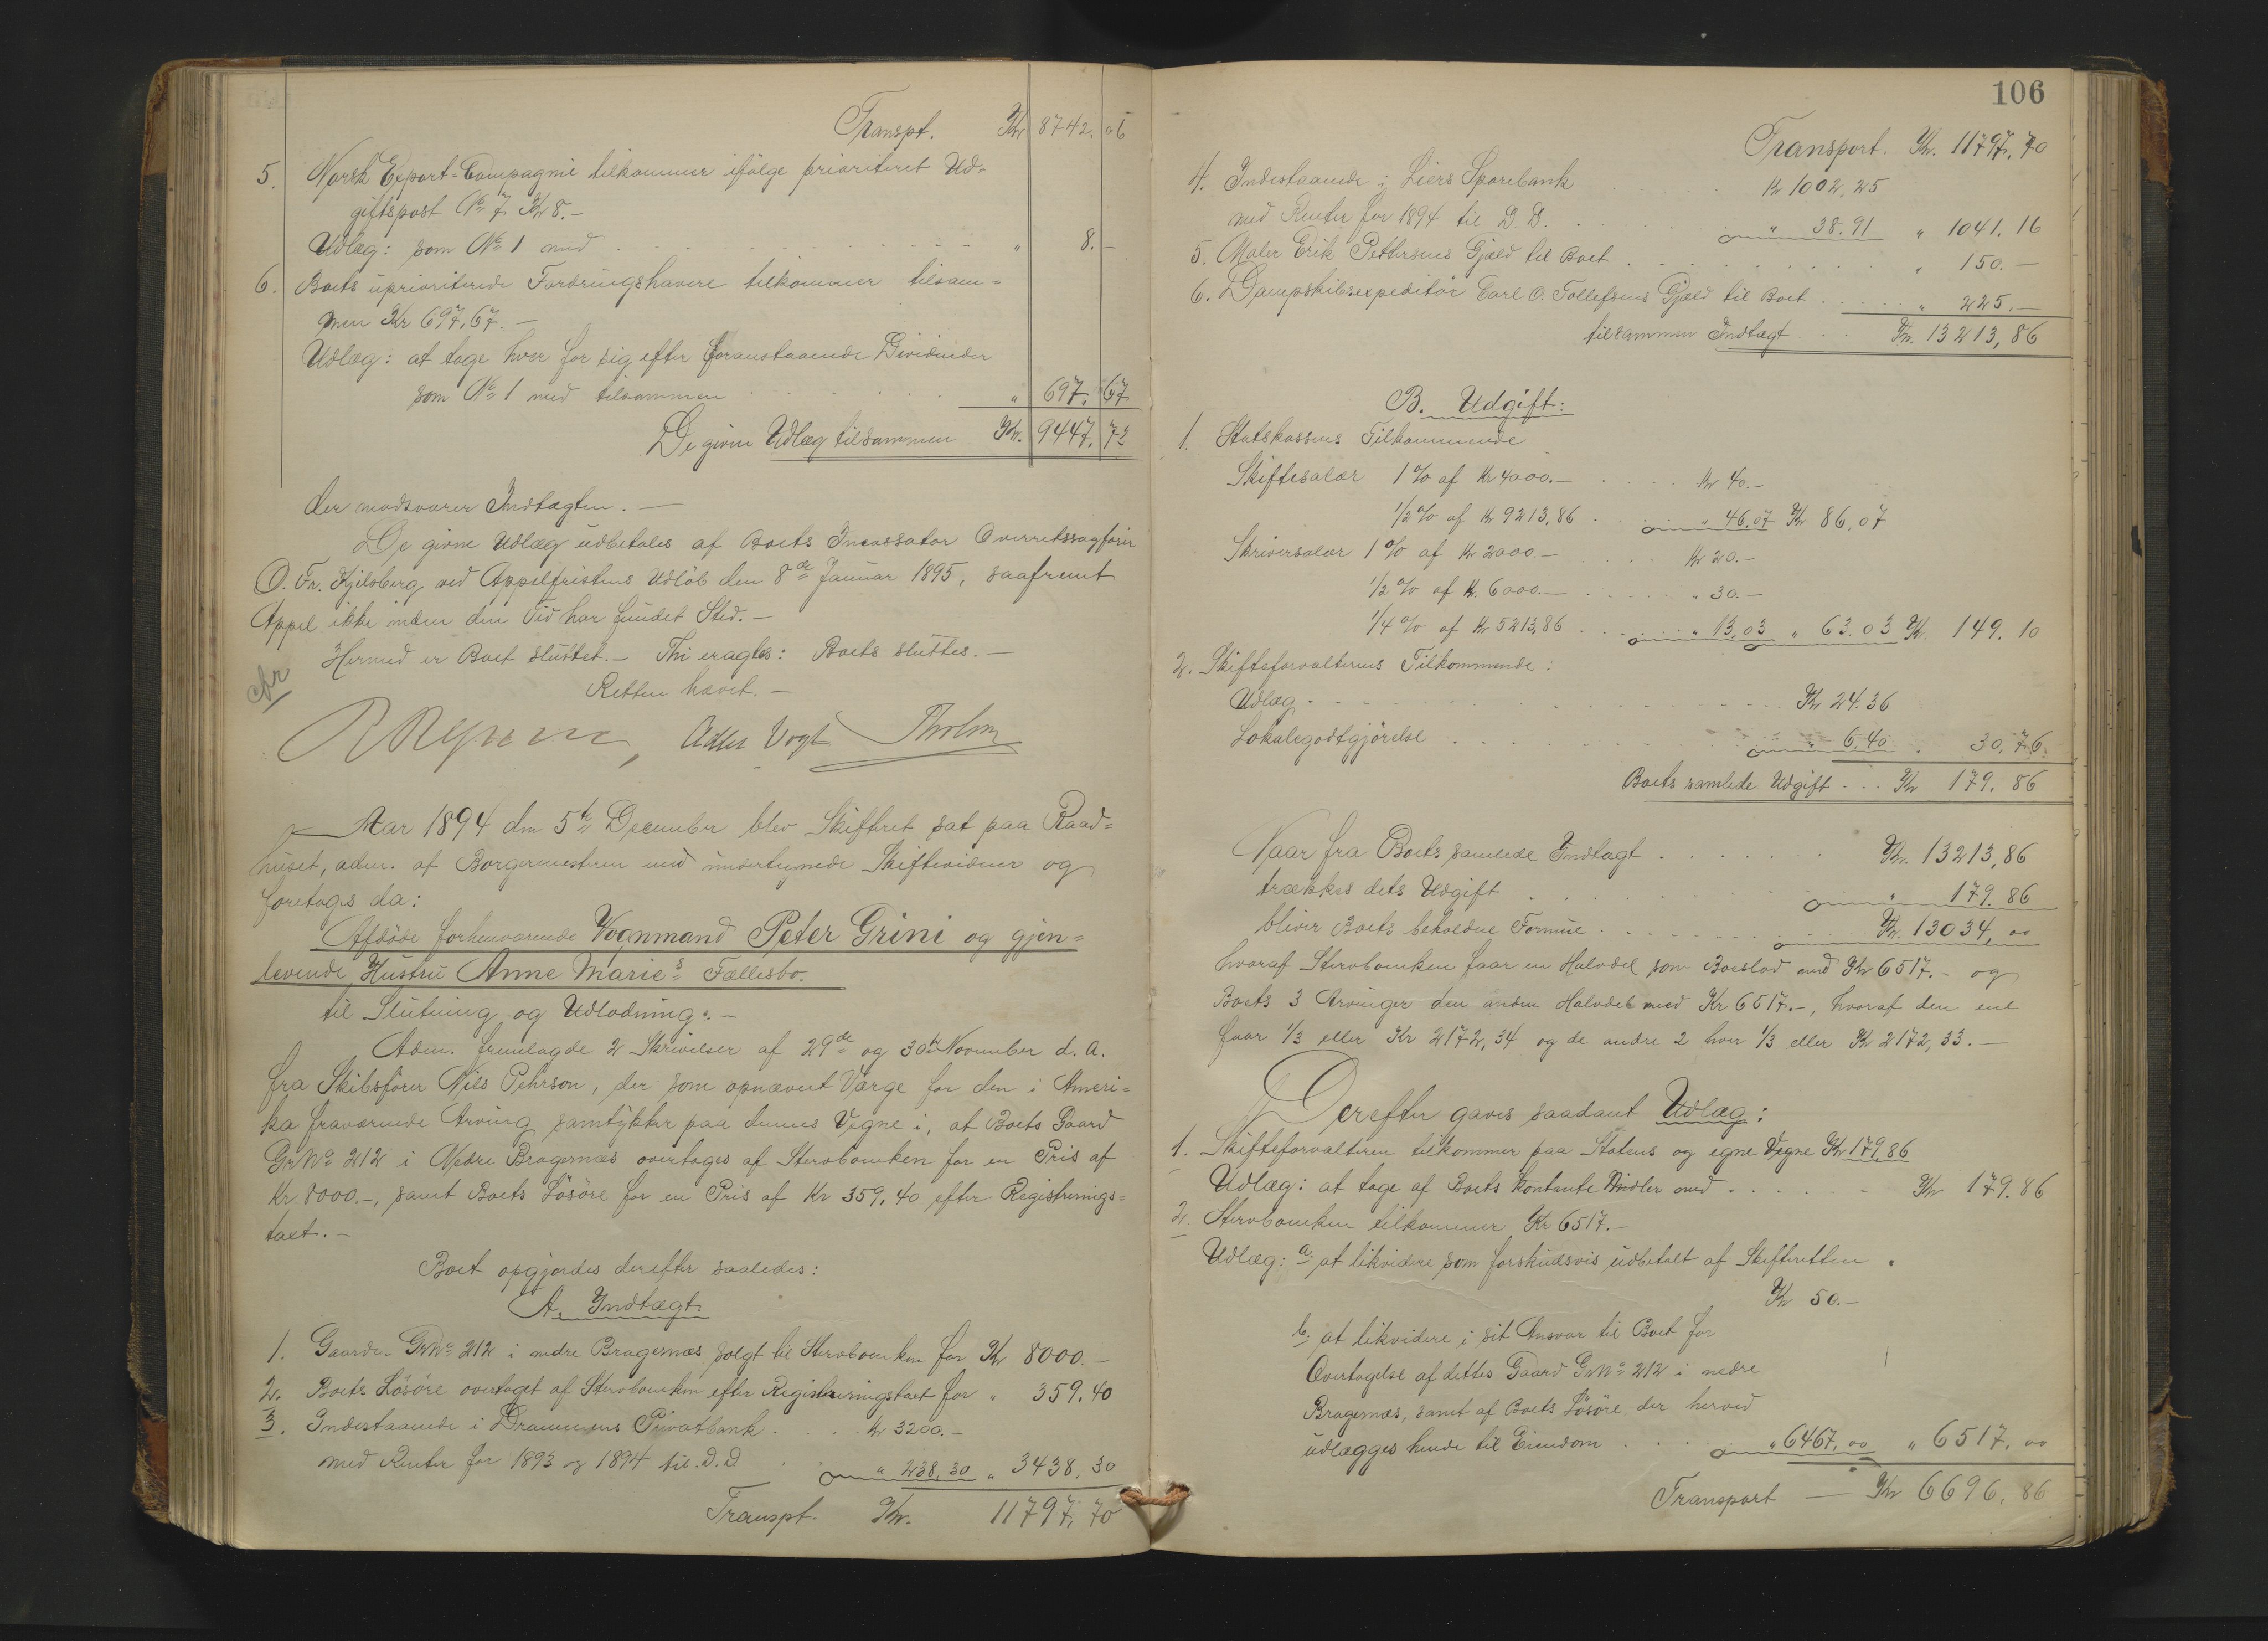 Transpt. Kr 8742. 06
5. Norsk Export=Compagnie tilkommer ifölge prioriteret Ud-
giftspost No 7 Kr 8.-
Udlæg: som No 1 med . . . " 8.-
6. Boets uprioriterede Fordringshavere tilkommer tilsam-
men Kr 697,67.-
Udlæg: at tage hver for sig efter foranstaaende Dividender
som No 1 med tilsammen . . . " 697. 67
De givne Udlæg tilsammen Kr. 9447. 73
der modsvarer Indtægten.-
De givne Udlæg udbetales af Boets Incassator Overretssagfører
O. Fr. Kjilsberg ved Appelfristens Udlöb den 8de Januar 1895, saafremt
Appel ikke inden den Tid har fundet Sted.-
Hermed er Boet sluttet.- Thi eragtes: Boets sluttes.-
Retten hævet.-
cfr
Adler Vogt Tholm
Aar 1894 den 5te December blev Skifteret sat paa Raad=
huset, adm. af Borgermesteren med undertegnede Skiftevidner og
foretoges da:
Afdöde forhenværende Vognmand Peter Grini og gjen=
levende Hustru Anne Marie's Fællesbo.
til Slutning og Udlodning.-
Adm. fremlagde 2 Skrivelser af 29de og 30te November d. A.
fra Skibsförer Nils Pehrson, der som opnævnt Værge for den i Ameri=
ka fraværende Arving samtykker paa dennes Vegne i, at Boets Gaard
Gr No 212 i Nedre Bragernæs overtages af Stervboenken for en Pris af
Kr 8000.-, samt Boets Lösöre for en Pris af Kr 359,40 efter Registrerings=
taxt.-
Boet opgjordes derefter saaledes:
A. Indtægt.
1. Gaarden Gr No 212 i nedre Bragernæs solgt til Stervboenken for Kr 8000.-
2. Boets Lösöre overtaget af Stervboenken efter Registreringstaxt for " 359.40
3. Indestaaende i Drammens Privatbank . . . Kr 3200.-
med Renter for 1893 og 1894 til D.D . . . " 238,30 " 3438,30
Transpt. Kr. 11797,70
106
Transport. Kr. 11797,70
4. Indestaaende i Liers Sparebank . . . Kr 1002,25
med Renter for 1894 til D.D. . . . " 38.91 " 1041.16
5. Maler Erik Pettersens Gjæld til Boet . . . " 150.-
6. Dampskibsexpeditör Carl O. Tollefsens Gjæld til Boet . . . " 225.-
tilsammen Indtægt . . . Kr. 13213,86
B. Udgift:
1. Statskassens Tilkommende
Skiftesalær 1% af Kr 4000.- . . . Kr 40.-
1/2% af Kr 9213,86 . . . " 46,07 Kr 86,07
Skriversalær 1% af Kr 2000.- . . . Kr 20.-
1/2% af Kr. 6000.- . . . " 30.-
1/4% af Kr 5213,86 . . . " 13.03 " 63.03 Kr. 149.10
2. Skifteforvalterens Tilkommende:
Udlæg . . . Kr 24.36
Lokalegodtgjörelse . . . " 6.40 . 30,76.
Boets samlede Udgift . . . Kr 179,86
Naar fra Boets samlede Indtægt . . . Kr. 13213,86
trækkes dets Udgift . . . " 179.86
bliver Boets beholdne Formue . . . Kr. 13034,00
hvoraf Stervboenken faar en Halvdel som Boeslod med Kr 6517.- og
Boets 3 Arvinger den anden Halvdel med Kr 6517.-, hvoraf den ene
faar 1/3 eller Kr 2172,34 og de andre 2 hver 1/3 eller Kr 2172,33.-
Derefter gaves saadant Udlæg:
1. Skifteforvalteren tilkommer paa Statens og egne Vegne Kr 179,86
Udlæg: at tage af Boets kontante Midler med . . . Kr 179.86
2. Stervboenken tilkommer Kr 6517.-
Udlæg: a. at likvidere som forskudsvis udbetalt af Skifteretten .
Kr 50.-
b. at likvidere i sit Ansvar til Boet for
Overtagelse af dettes Gaard Gr No 212 i nedre
Bragernæs, samt af Boets Lösöre, der herved
udlægges hende til Eiendom . . . " 6467,00 " 6517,00
Transport — Kr 6696,86